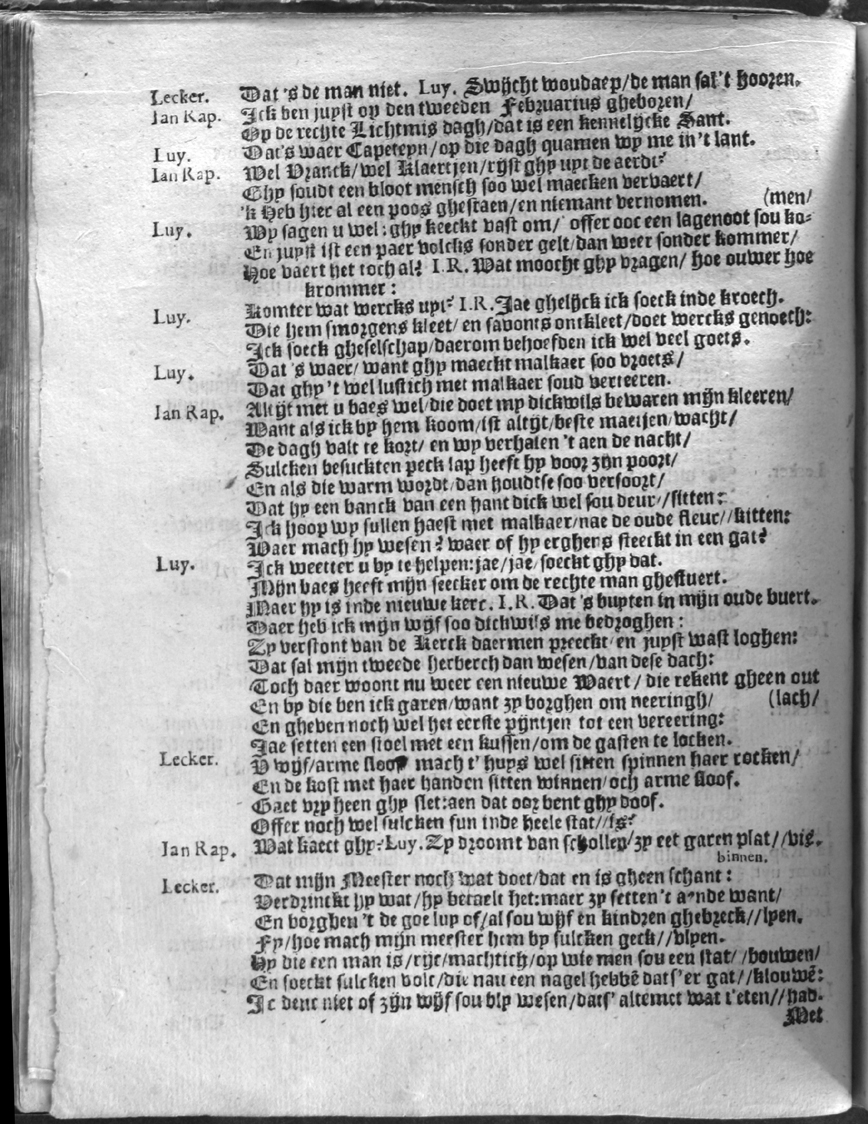 Lecker. Dat 's de man niet. Luy. Swijcht woudaep/de man sal't hooren.
Ian Rap. Ick ben juyst op den tweeden Februarius gheboren/
Op de rechte Lichtmis dagh/dat is een kennelijcke Sant.
Luy. Dat's waer Capeteyn/op die dagh quamen wy me in't lant.
Ian Rap. Wel Vranck/wel Klaertjen/rijst ghy uyt de aerdt?
Ghy soudt een bloot mensch soo wel maecken vervaert/
'k Heb hier al een poos ghestaen/en niemant vernomen. (men/
Luy. Wy sagen u wel: ghy keeckt vast om/ offer ooc een lagenoot sou ko-
En juyst ist een paer volcks sonder gelt/dan weer sonder kommer/
Hoe vaert het toch al? I.R. Wat moocht ghy vragen/ hoe ouwer hoe
krommer:
Luy. Komter wat wercks uyt? I.R. Jae ghelijck ick soeck inde kroech.
Die hem smorgens kleet/en savonts ontkleet/doet wercks genoech:
Ick soeck gheselschap/daerom behoefden ick wel veel goets.
Luy. Dat 's waer/ want ghy maeckt malkaer soo vroets/
Dat ghy 't wel lustich met malkaer soud verteeren.
Jan Rap. Altijt met u baes wel/die doet my dickwils bewaren mijn kleeren/
Want als ick by hem koom/ist altijt/beste maetjen/wacht/
De dagh valt te kort/ en wy verhalen 't aen de nacht/
Sulcken besuckten peck lap heeft hy voor zijn poort/
En als die warm wordt/dan houdtse soo versoort/
Dat hy een banck van een hant dick wel sou deur//sitten:
Ick hoop wy sullen haest met malkaer/nae de oude fleur//kitten:
Waer mach hy wesen? waer of hy erghens steeckt in een gat?
Luy. Ick weetter u by te helpen: jae/jae/soeckt ghy dat.
Mijn baes heeft mijn seecker om de rechte man ghestuert.
Maer hy is inde nieuwe kerc. I.R. Dat 's buyten in mijn oude buert.
Daer heb ick mijn wijf soo dickwils me bedroghen:
Zy verstont van de Kerck daermen preeckt/en juyst wast loghen:
Dat sal mijn tweede herberch dan wesen/van dese dach:
Toch daer woont nu weer een nieuwe Waert/ die rekent gheen out
En by die ben ick garen/want zy borghen om neeringh/ (lach/
En gheven noch wel het eerste pijntjen tot een vereering:
Jae setten een stoel met een kussen/om de gasten te locken.
Lecker. V wijf/arme sloof mach t' huys wel sitten spinnen haer rocken/
En de kost met haer handen sitten winnen/och arme sloof.
Gaet vry heen ghy slet: aen dat oor bent ghy doof.
Offer noch wel sulcken sun inde heele stat//is?
Jan Rap. Wat kaect ghy? Luy. Zy droomt van schollen/zy eet garen plat//vis.
binnen.
Lecker. Dat mijn Meester noch wat doet/dat en is gheen schant:
Verdrinckt hy wat/hy betaelt het: maer zy setten't aende want/
En borghen 't de goe luy of/al sou wijf en kindren ghebreck//lyen.
Fy/hoe mach mijn meester hem by sulcken geck//vlyen.
Hy die een man is/rijc/machtich/op wie men sou een stat//bouwen/
En soeckt sulcken volc/die nau een nagel hebbē dats'er gat//klouwē:
Ic denc niet of zijn wijf sou bly wesen/dats' altemet wat t'eten//had.
Met